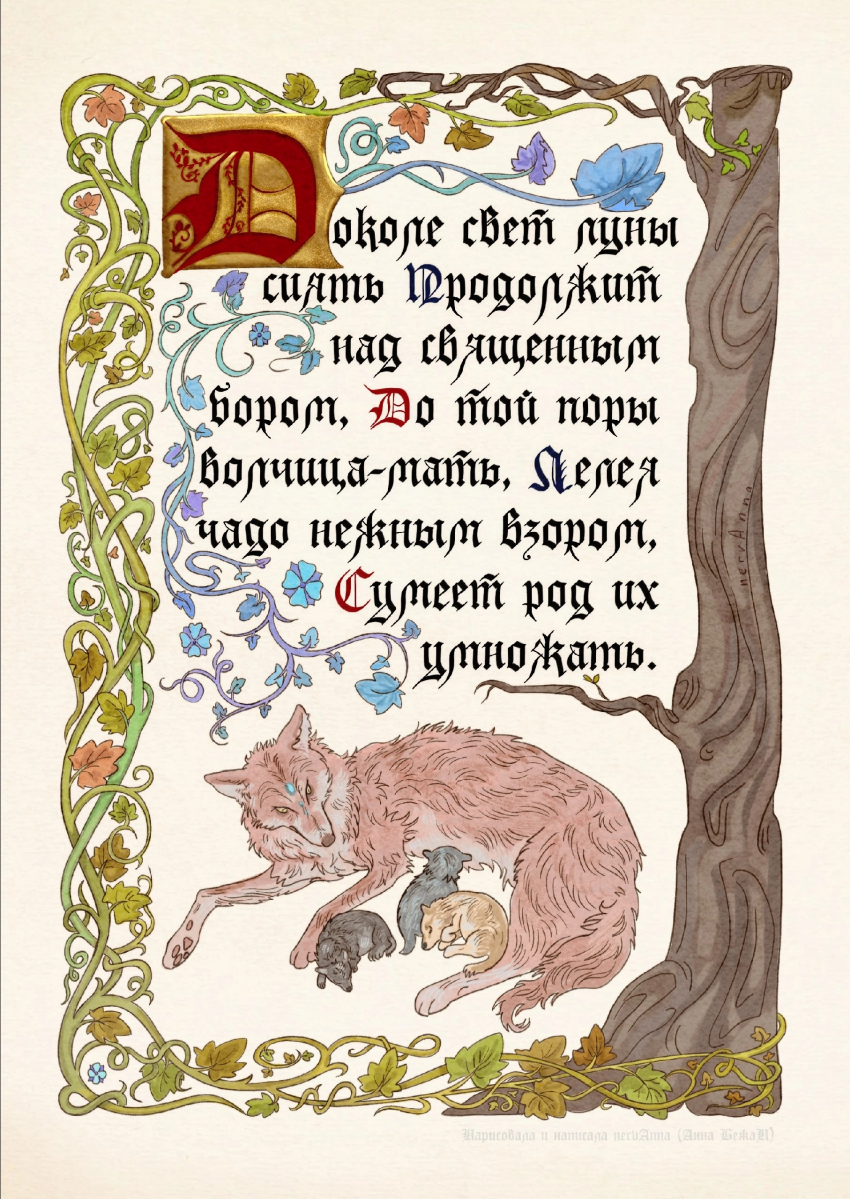 Доколе свет луны
сиять Продолжит
над священным
бором, До той поры
волчица-мать, Лелея
чадо нежным взором,
Сумеет род их
умножать.
nervAnna
Нарисовала и написала nervAnna (Анна БежаН)